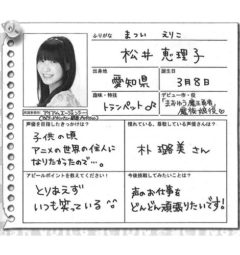 ふりがな まつい えりこ
松井 恵理子
出身地
愛知県
誕生日
3月8日
趣味・特技
トランペット♂
デビュー作・役
魔後娘役
声優を目指したきっかけは?
子供の頃
アニメの世界の住人に
なりたかったので…。
憧れている、尊敬している声優さんは?
朴 璐美 さん
アピールポイントを教えてください!
とりあえず
いつも笑っている
今後挑戦してみたいことは?
声のお仕事を
どんどん頑張りたいです!